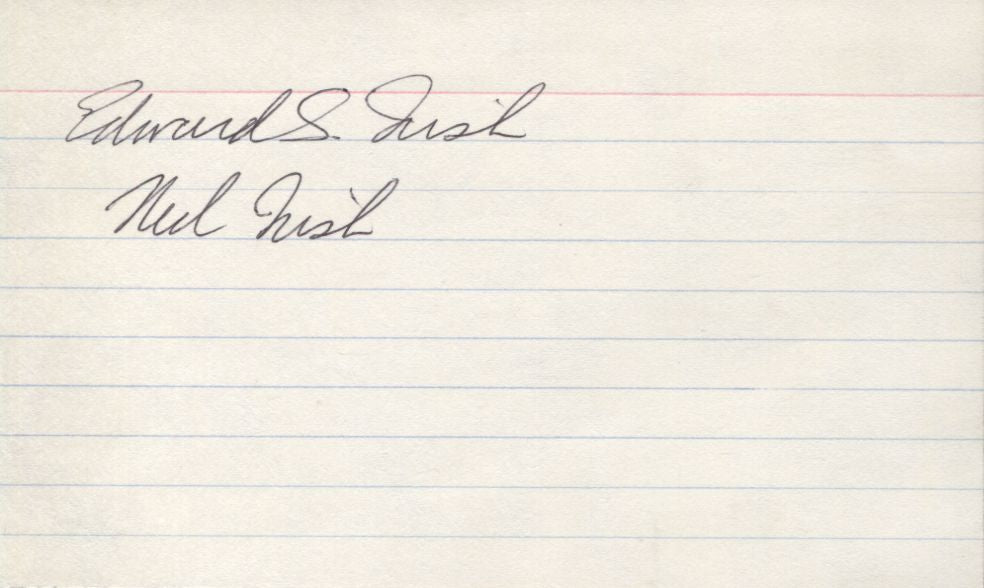 Edward S. Irish
Ned Irish